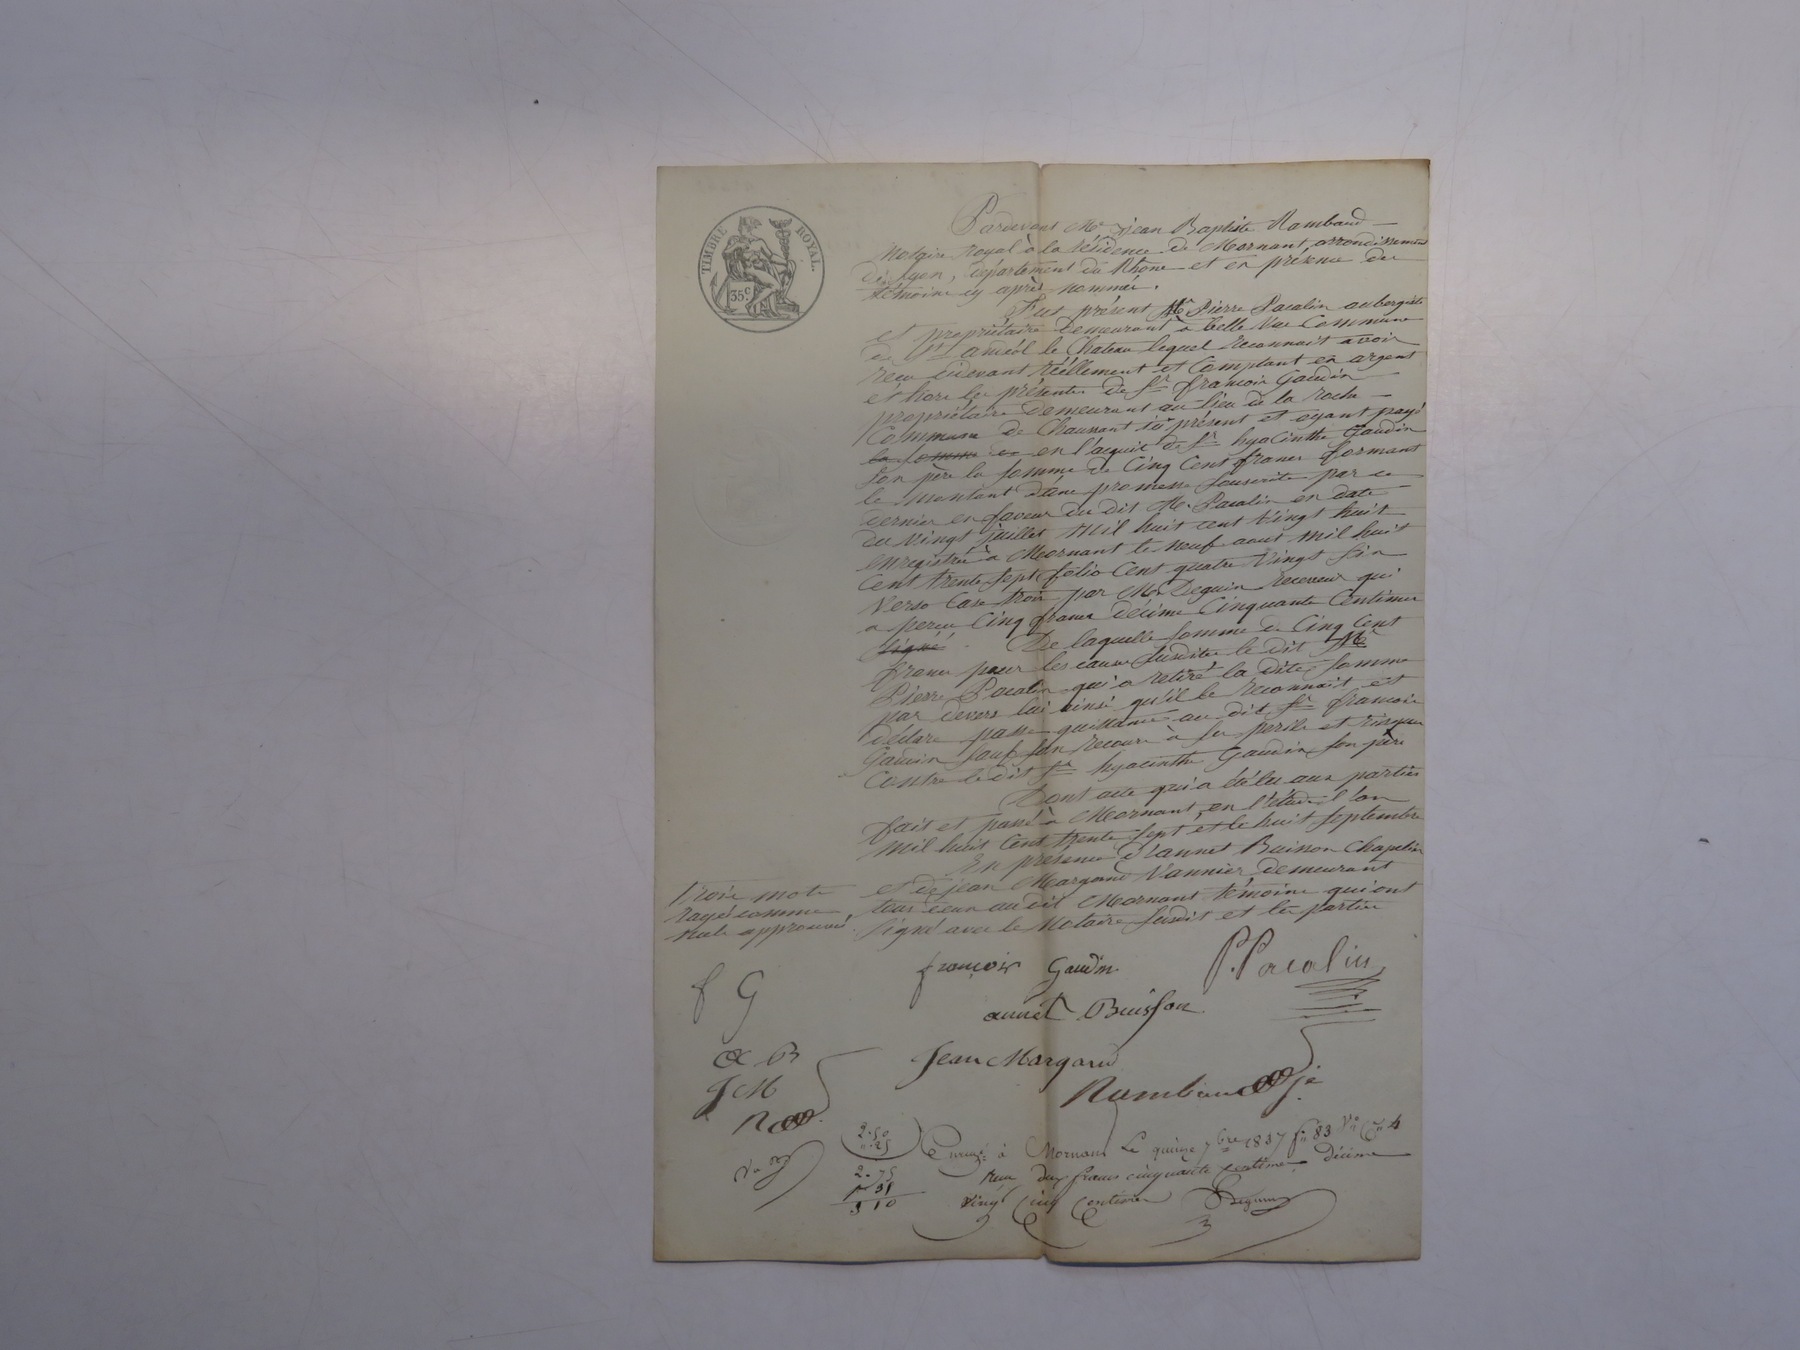 TIMBRE ROYAL.
35c
Pardevant Me Jean Baptiste Rambaud
Notaire royal à la résidence de Mornant, arrondissement
de Lyon, département du Rhône et en présence des
témoins cy après nommés.
Fut présent Mr Pierre Pacalin aubergiste
et propriétaire demeurant à belle Vue Commune
de St Lamdéol le Chateau lequel reconnait avoir
reçu cidevant réellement et Comptant en argent
et hors les présentes de Sr françois Gaudin
propriétaire demeurant au lieu de la roche
Commune de Chaussant ici présent et ayant payé
la Somme de en l'acquit de Sr hyacinthe Gaudin
Son père la Somme de Cinq Cent francs formant
le montant d'une promesse Souscrite par ce
dernier en faveur du dit Mr. Pacalin en date
du Vingt juillet Mil huit cent Vingt huit
enregistrée à Mornant le neuf aout Mil huit
Cent trente Sept folio Cent quatre Vingt Six
Verso Case trois par Mr Deguin receveur qui
a perçu Cinq francs décime Cinquante Centimes
Signé. De laquelle Somme de Cinq Cent
francs pour les causes Susdites le dit Mr
Pierre Pacalin qui a retiré la dite Somme
par devers lui ainsi qu'il le reconnait et
déclare passe quittance au dit Sr françois
Gaudin Sauf Son recours à Ses perils et risques
Contre le dit Sr hyacinthe Gaudin Son père
Dont acte qui a été lu aux parties
fait et passé à Mornant, en l'étude l'an
Mil huit Cent trente Sept et le huit Septembre
En présence d'annet Buisson Chapelier
et de jean Margand Vannier demeurant
tous deux au dit Mornant témoins qui ont
Signé avec le Notaire Susdit et les parties
trois mots
rayés comme
nuls approuvés.
françois Gaudin P. Pacalin
f G
annet Buisson
a B
Jean Margand
J M
Rambaud
R
2.50
".25
2.75
31
3 10
Enregé à Mornant Le quinze 7bre 1837 fo 83 Vo Ce 4
reçu deux francs cinquante centimes décime
Vingt Cinq Centimes Deguin